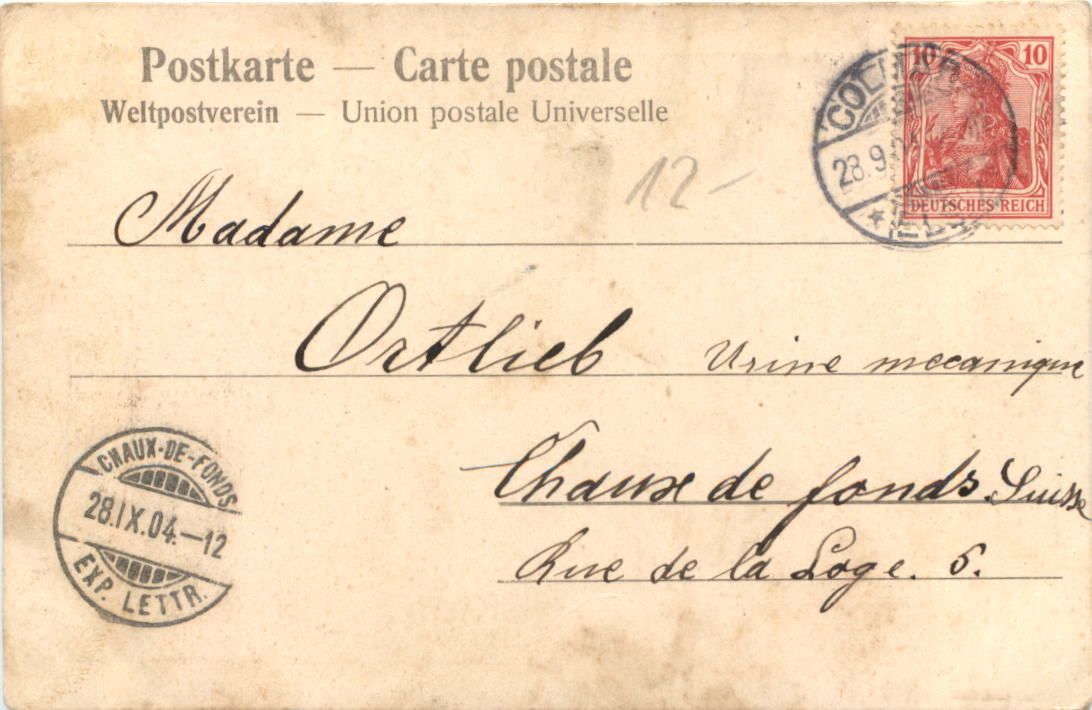 Postkarte — Carte postale
Weltpostverein — Union postale Universelle
10 10
DEUTSCHES REICH
28.9.
12-
Madame
Ortlieb Urine mecanique
Chaux de fonds. Suisse
Rue de la Loge. 5.
CHAUX-DE-FONDS
28.IX.04.-12
EXP. LETTR.